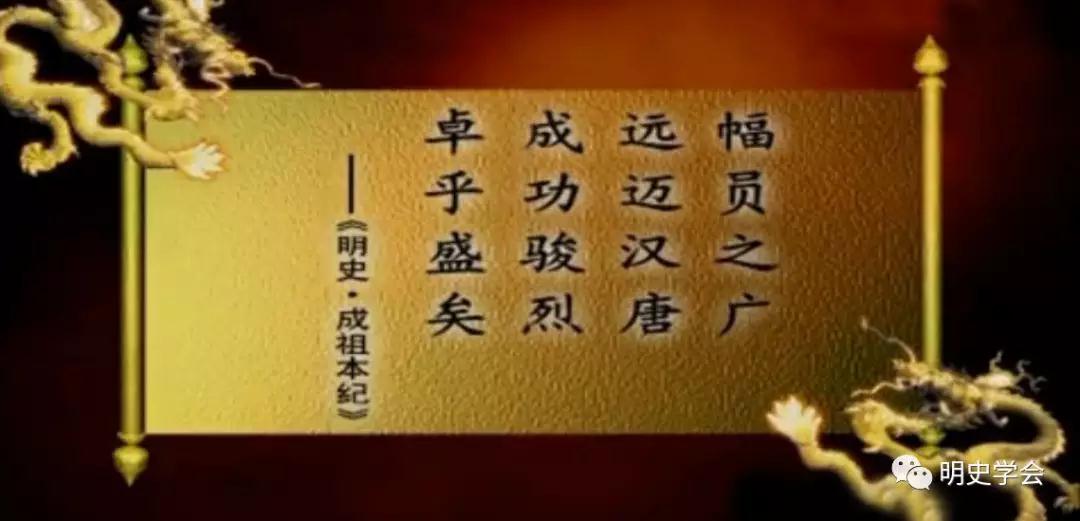 幅员之广
远迈汉唐
成功骏烈
卓乎盛矣
——《明史·成祖本纪》
明史学会